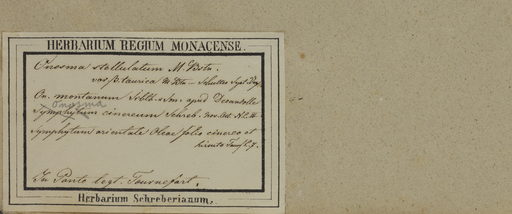 HERBARIUM REGIUM MONACENSE.
Onosma stellulatum M. Bbn.
var β. taurica M Bbn — Schultes Syst Veg.
On. montanum Sibth. & Sm. apud Decandolle
Onosma
Symphytum cinereum Schreb. Nov. Act. N.C. III
Symphytum orientale Oleae folio cinereo et
hirsuto Tournef. 7.
In Ponto legt. Tournefort.
Herbarium Schreberianum.